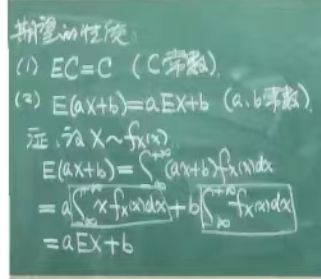 期望的性质:
(1) EC=C (C常数)
(2) E(aX+b)=aEX+b (a,b常数)
证:设X~fx(x)
E(ax+b)=∫_{-∞}^{+∞}(ax+b)fx(x)dx
=a∫_{-∞}^{+∞}xfx(x)dx+b∫_{-∞}^{+∞}fx(x)dx
=aEX+b